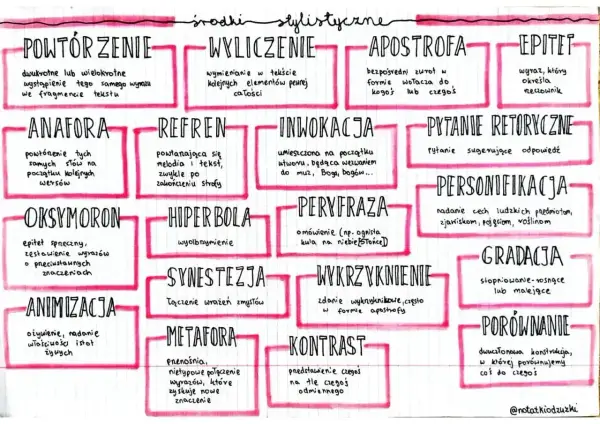 środki stylistyczne
POWTÓRZENIE
dwukrotne lub wielokrotne
wystąpienie tego samego wyrazu
we fragmencie tekstu
WYLICZENIE
wymienianie w tekście
kolejnych elementów pewnej
całości
APOSTROFA
bezpośredni zwrot w
formie wołacza do
kogoś lub czegoś
EPITET
wyraz, który
określa
rzeczownik
ANAFORA
powtórzenie tych
samych słów na
początku kolejnych
wersów
REFREN
powtarzająca się
melodia i tekst,
zwykle po
zakończeniu strofy
INWOKACJA
umieszczona na początku
utworu, będąca wezwaniem
do muz, Boga, bogów...
PYTANIE RETORYCZNE
Pytanie sugerujące odpowiedź
OKSYMORON
epitet sprzeczny,
zestawienie wyrazów
o przeciwstawnych
znaczeniach
HIPERBOLA
wyolbrzymienie
PERYFRAZA
omówienie (np. ognista
kula na niebie[słońce])
PERSONIFIKACJA
nadanie cech ludzkich przedmiotom,
zjawiskom, pojęciom, roślinom
SYNESTEZJA
Łączenie wrażeń zmysłów
WYKRZYKNIENIE
zdanie wykrzyknikowe, często
w formie apostrofy
GRADACJA
stopniowanie-rosnące
lub malejące
ANIMIZACJA
ożywienie, nadanie
właściwości istot
żywych
METAFORA
przenośnia,
nietypowe połączenie
wyrazów, które
zyskuje nowe
znaczenie
KONTRAST
przedstawienie czegoś
na tle czegoś
odmiennego
PORÓWNANIE
dwuczłonowa konstrukcja,
w której porównujemy
coś do czegoś
@notatkiodzuzki